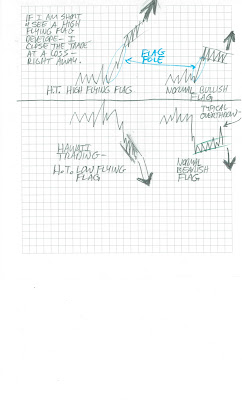 IF I AM SHORT
& SEE A HIGH
FLYING FLAG
DEVELOPE - I
CLOSE THE TRADE
AT A LOSS -
RIGHT AWAY.
FLAG
POLE
H.T. HIGH FLYING FLAG
NORMAL BULLISH
FLAG
TYPICAL
OVERTHROW
HAWAII
TRADING -
H.T. LOW FLYING
FLAG
NORMAL
BEARISH
FLAG